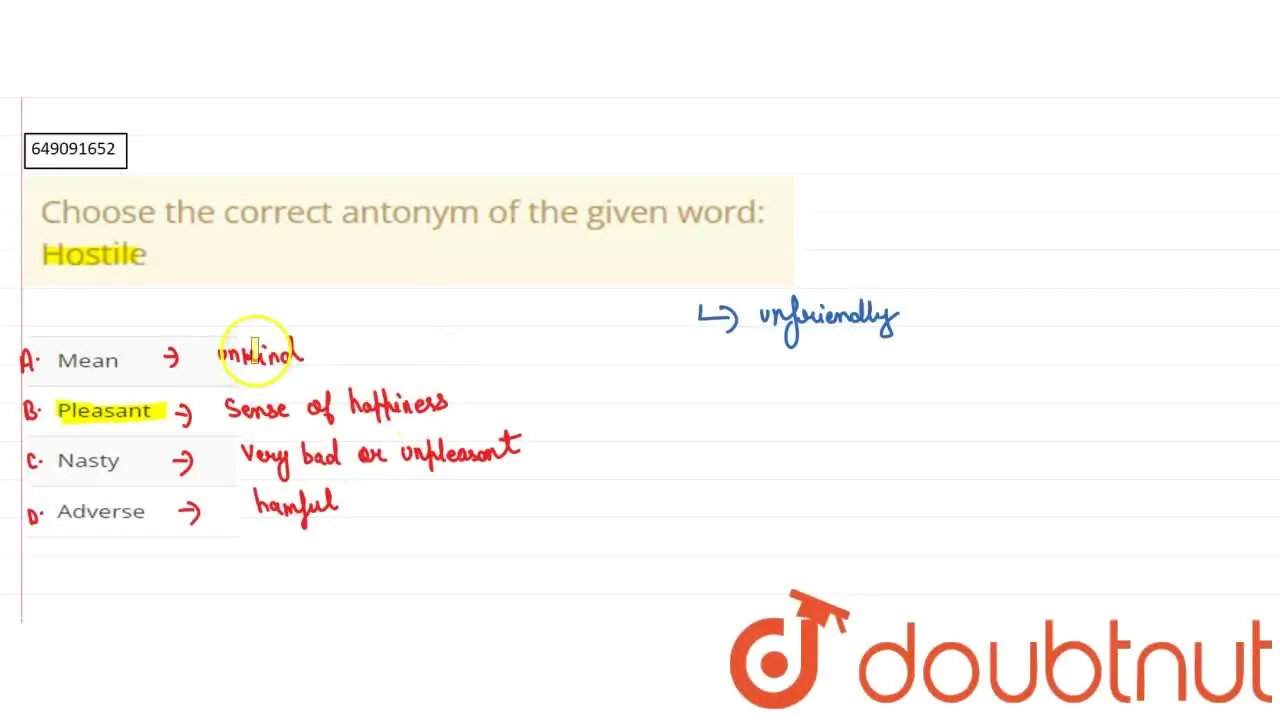 649091652
Choose the correct antonym of the given word:
Hostile
↳ unfriendly
A. Mean → unkind
B. Pleasant → Sense of happiness
C. Nasty → Very bad or unpleasant
D. Adverse → hamful
doubtnut